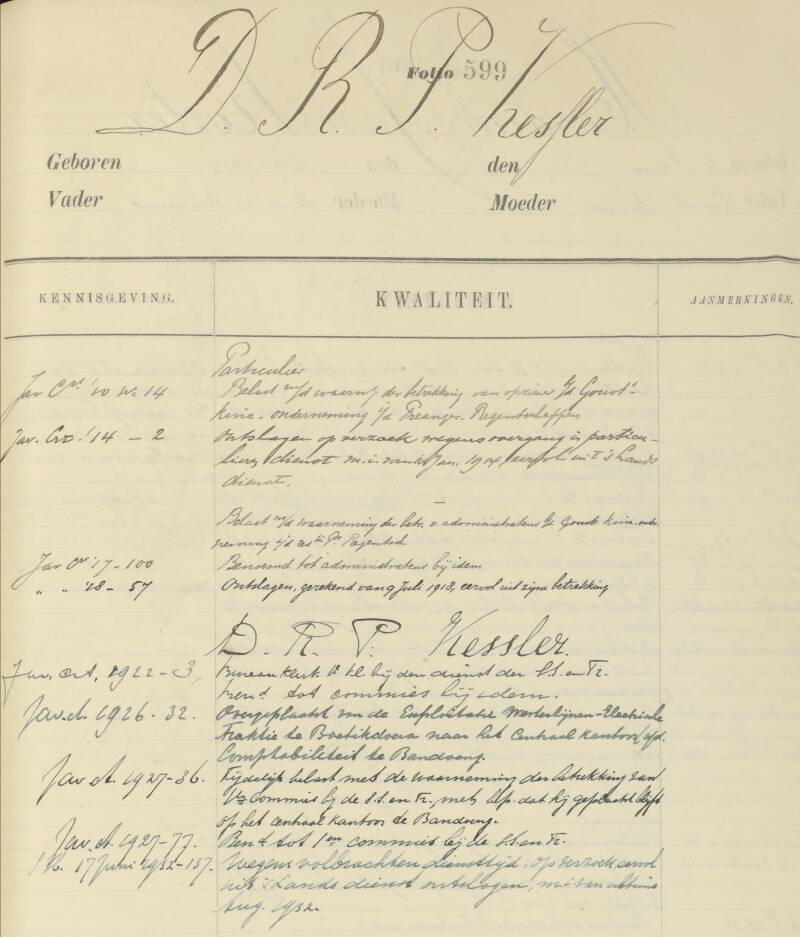 Folio 599
D. R. P. Kessler
Geboren den
Vader Moeder
KENNISGEVING. KWALITEIT. AANMERKINGEN.
Particulier
Jav Crt '10 No 14 Belast m/d waarng der betrekking van opziener b/d Gouvts-
kina-onderneming i/d Preanger-Regentschappen
Jav. Crt. '14 - 2 Ontslagen op verzoek wegens overgang in particu-
lieren dienst m. i. van Jan. 1914, eervol uit 's Lands
dienst.
Belast m/d waarneming der betr. v. administrateur Gouvts Kina-onder-
neming i/d Pr Regentsch
Jav Crt '17-100 Benoemd tot administrateur bij idem
" " '18-57 Ontslagen, gerekend van 9 Juli 1918, eervol uit zijne betrekking
D. R. P. Kessler.
Jav. Crt. 1922-3, Bureau klerk bij den dienst der S.S. en Tr.
Bend tot commies bij idem.
Jav. ct. 1926-32. Overgeplaatst van de Exploitatie Westerlijnen-Electrische
Traktie te naar het Centraal kantoor, afd.
Comptabiliteit te Bandoeng.
Jav ct. 1927-36. Tijdelijk belast met de waarneming der betrekking van
1en Commies bij de S.S. en Tr., met bep. dat hij geplaatst blijft
op het centraal kantoor te Bandoeng.
Jav. ct. 1927-77. Bend tot 1en commies bij de S.S. en Tr.
17 Juni 1932-157. Wegens volbrachten diensttijd, op verzoek, eervol
uit 's Lands dienst ontslagen, met van ultimo
Aug. 1932.